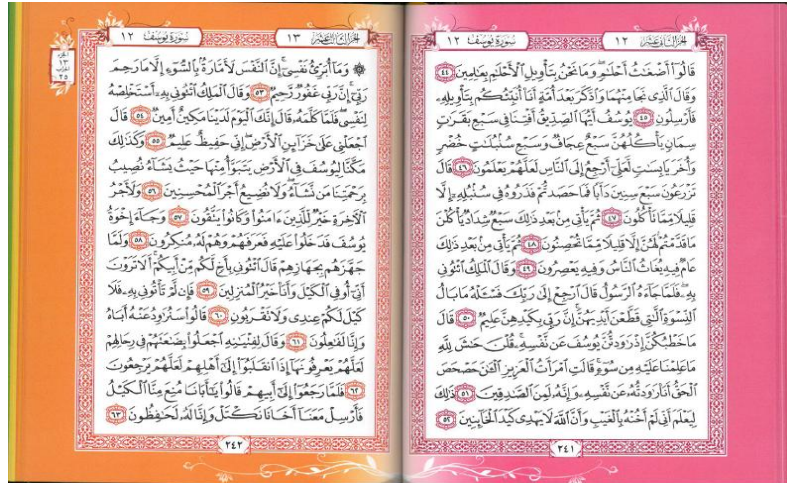 الجزء الثاني عشر ١٢
سورة يوسف ١٢
قَالُوٓا۟ أَضْغَٰثُ أَحْلَٰمٍ ۖ وَمَا نَحْنُ بِتَأْوِيلِ ٱلْأَحْلَٰمِ بِعَٰلِمِينَ ٤٤
وَقَالَ ٱلَّذِى نَجَا مِنْهُمَا وَٱدَّكَرَ بَعْدَ أُمَّةٍ أَنَا۠ أُنَبِّئُكُم بِتَأْوِيلِهِۦ
فَأَرْسِلُونِ ٤٥ يُوسُفُ أَيُّهَا ٱلصِّدِّيقُ أَفْتِنَا فِى سَبْعِ بَقَرَٰتٍ
سِمَانٍ يَأْكُلُهُنَّ سَبْعٌ عِجَافٌ وَسَبْعِ سُنۢبُلَٰتٍ خُضْرٍ
وَأُخَرَ يَابِسَٰتٍ لَّعَلِّىٓ أَرْجِعُ إِلَى ٱلنَّاسِ لَعَلَّهُمْ يَعْلَمُونَ ٤٦ قَالَ
تَزْرَعُونَ سَبْعَ سِنِينَ دَأَبًا فَمَا حَصَدتُّمْ فَذَرُوهُ فِى سُنۢبُلِهِۦٓ إِلَّا
قَلِيلًا مِّمَّا تَأْكُلُونَ ٤٧ ثُمَّ يَأْتِى مِنۢ بَعْدِ ذَٰلِكَ سَبْعٌ شِدَادٌ يَأْكُلْنَ
مَا قَدَّمْتُمْ لَهُنَّ إِلَّا قَلِيلًا مِّمَّا تُحْصِنُونَ ٤٨ ثُمَّ يَأْتِى مِنۢ بَعْدِ ذَٰلِكَ
عَامٌ فِيهِ يُغَاثُ ٱلنَّاسُ وَفِيهِ يَعْصِرُونَ ٤٩ وَقَالَ ٱلْمَلِكُ ٱئْتُونِى
بِهِۦ ۖ فَلَمَّا جَآءَهُ ٱلرَّسُولُ قَالَ ٱرْجِعْ إِلَىٰ رَبِّكَ فَسْـَٔلْهُ مَا بَالُ
ٱلنِّسْوَةِ ٱلَّٰتِى قَطَّعْنَ أَيْدِيَهُنَّ ۚ إِنَّ رَبِّى بِكَيْدِهِنَّ عَلِيمٌ ٥٠ قَالَ
مَا خَطْبُكُنَّ إِذْ رَٰوَدتُّنَّ يُوسُفَ عَن نَّفْسِهِۦ ۚ قُلْنَ حَٰشَ لِلَّهِ
مَا عَلِمْنَا عَلَيْهِ مِن سُوٓءٍ ۚ قَالَتِ ٱمْرَأَتُ ٱلْعَزِيزِ ٱلْـَٰٔنَ حَصْحَصَ
ٱلْحَقُّ أَنَا۠ رَٰوَدتُّهُۥ عَن نَّفْسِهِۦ وَإِنَّهُۥ لَمِنَ ٱلصَّٰدِقِينَ ٥١ ذَٰلِكَ
لِيَعْلَمَ أَنِّى لَمْ أَخُنْهُ بِٱلْغَيْبِ وَأَنَّ ٱللَّهَ لَا يَهْدِى كَيْدَ ٱلْخَآئِنِينَ ٥٢
٢٤١
الجزء الثالث عشر ١٣
سورة يوسف ١٢
الجزء
١٣
الحزب
٢٥
۞ وَمَآ أُبَرِّئُ نَفْسِىٓ ۚ إِنَّ ٱلنَّفْسَ لَأَمَّارَةٌۢ بِٱلسُّوٓءِ إِلَّا مَا رَحِمَ
رَبِّىٓ ۚ إِنَّ رَبِّى غَفُورٌ رَّحِيمٌ ٥٣ وَقَالَ ٱلْمَلِكُ ٱئْتُونِى بِهِۦٓ أَسْتَخْلِصْهُ
لِنَفْسِى ۖ فَلَمَّا كَلَّمَهُۥ قَالَ إِنَّكَ ٱلْيَوْمَ لَدَيْنَا مَكِينٌ أَمِينٌ ٥٤ قَالَ
ٱجْعَلْنِى عَلَىٰ خَزَآئِنِ ٱلْأَرْضِ ۖ إِنِّى حَفِيظٌ عَلِيمٌ ٥٥ وَكَذَٰلِكَ
مَكَّنَّا لِيُوسُفَ فِى ٱلْأَرْضِ يَتَبَوَّأُ مِنْهَا حَيْثُ يَشَآءُ ۚ نُصِيبُ
بِرَحْمَتِنَا مَن نَّشَآءُ ۖ وَلَا نُضِيعُ أَجْرَ ٱلْمُحْسِنِينَ ٥٦ وَلَأَجْرُ
ٱلْـَٔاخِرَةِ خَيْرٌ لِّلَّذِينَ ءَامَنُوا۟ وَكَانُوا۟ يَتَّقُونَ ٥٧ وَجَآءَ إِخْوَةُ
يُوسُفَ فَدَخَلُوا۟ عَلَيْهِ فَعَرَفَهُمْ وَهُمْ لَهُۥ مُنكِرُونَ ٥٨ وَلَمَّا
جَهَّزَهُم بِجَهَازِهِمْ قَالَ ٱئْتُونِى بِأَخٍ لَّكُم مِّنْ أَبِيكُمْ ۚ أَلَا تَرَوْنَ
أَنِّىٓ أُوفِى ٱلْكَيْلَ وَأَنَا۠ خَيْرُ ٱلْمُنزِلِينَ ٥٩ فَإِن لَّمْ تَأْتُونِى بِهِۦ فَلَا
كَيْلَ لَكُمْ عِندِى وَلَا تَقْرَبُونِ ٦٠ قَالُوا۟ سَنُرَٰوِدُ عَنْهُ أَبَاهُ
وَإِنَّا لَفَٰعِلُونَ ٦١ وَقَالَ لِفِتْيَٰنِهِ ٱجْعَلُوا۟ بِضَٰعَتَهُمْ فِى رِحَالِهِمْ
لَعَلَّهُمْ يَعْرِفُونَهَآ إِذَا ٱنقَلَبُوٓا۟ إِلَىٰٓ أَهْلِهِمْ لَعَلَّهُمْ يَرْجِعُونَ
٦٢ فَلَمَّا رَجَعُوٓا۟ إِلَىٰٓ أَبِيهِمْ قَالُوا۟ يَٰٓأَبَانَا مُنِعَ مِنَّا ٱلْكَيْلُ
فَأَرْسِلْ مَعَنَآ أَخَانَا نَكْتَلْ وَإِنَّا لَهُۥ لَحَٰفِظُونَ ٦٣
٢٤٢